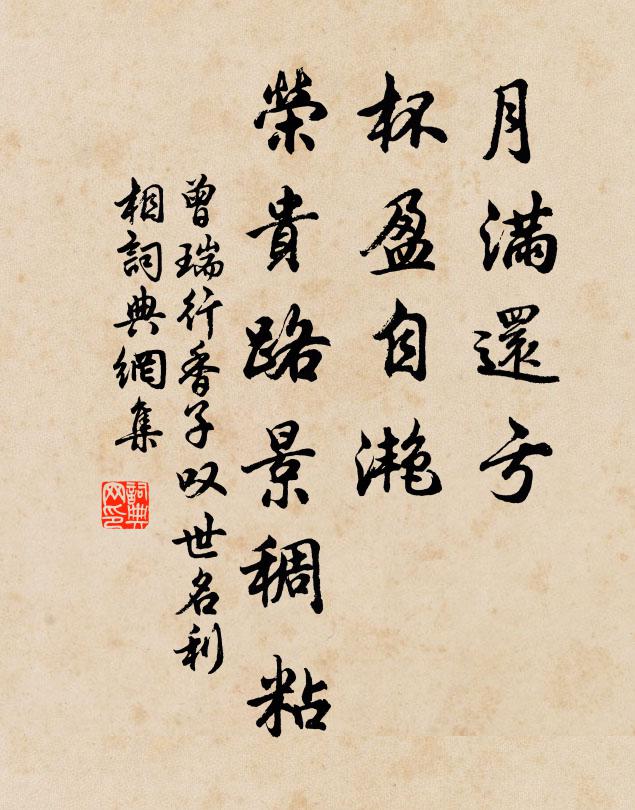 月滿還亏
杯盈自灔
榮貴路景稠粘
曾瑞行香子叹世名利
相詞典網集
詞典网印